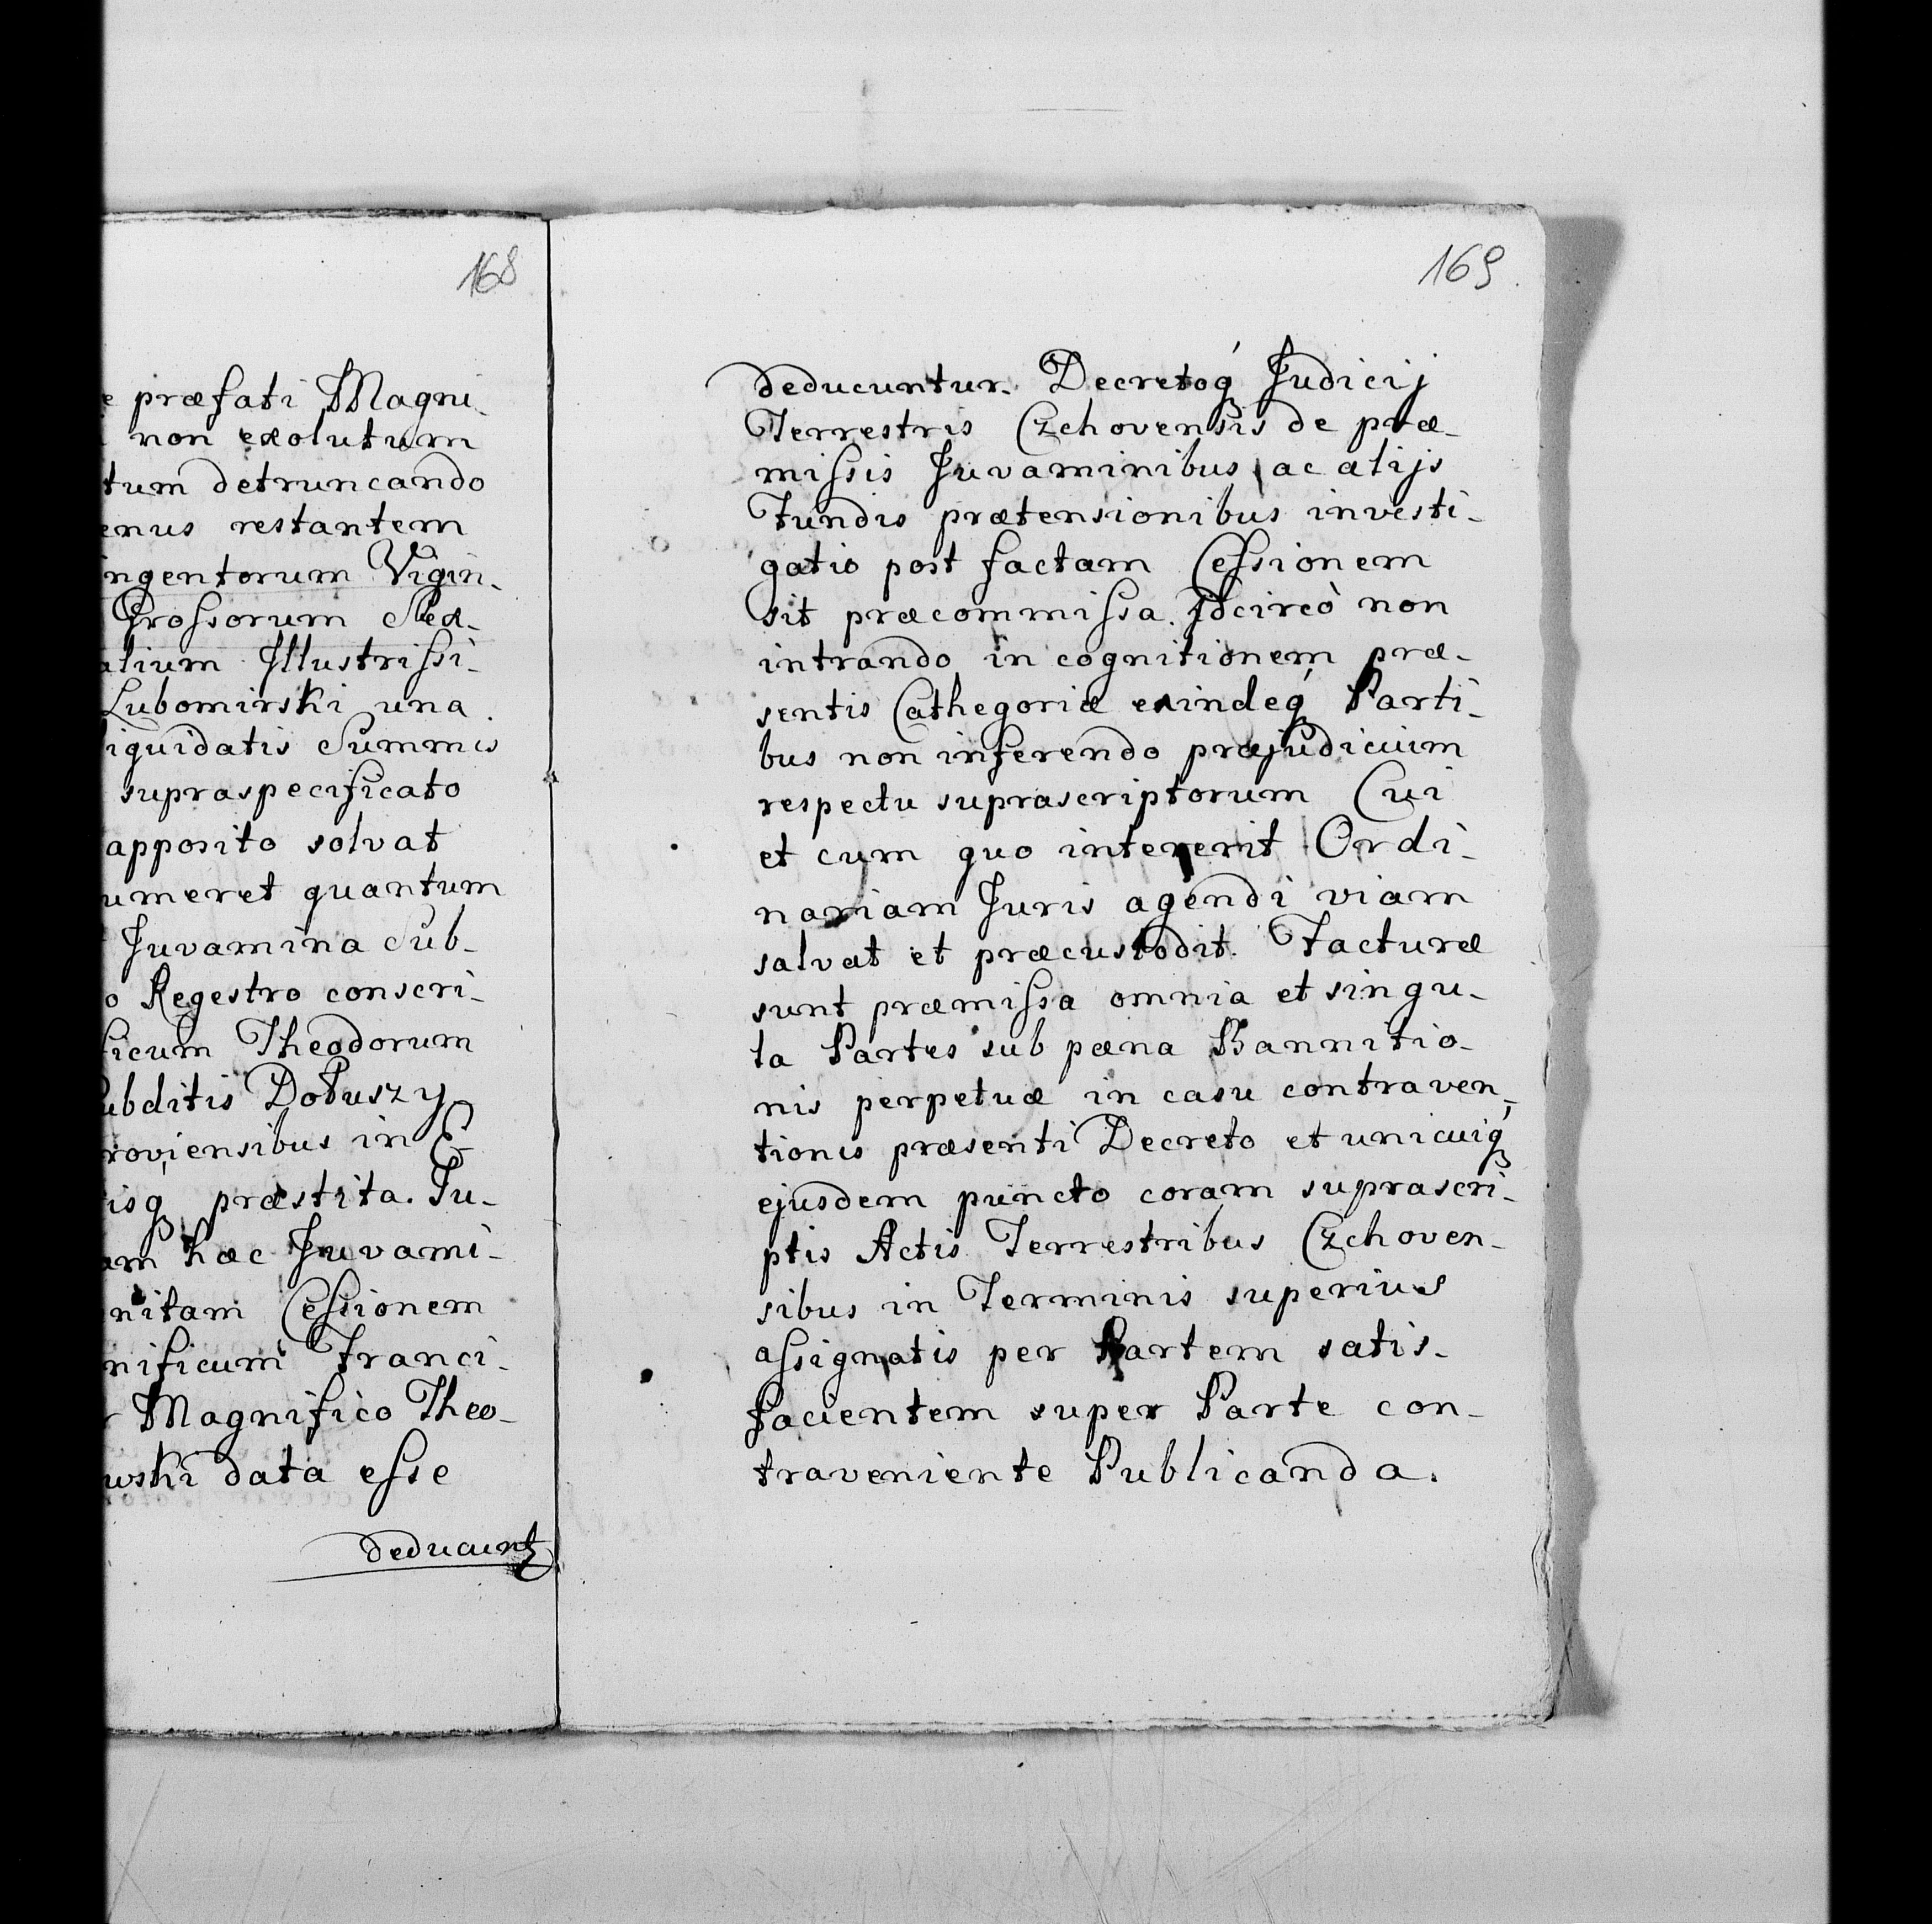 168
præfati Magni-
non exolutum
tum detruncando
enus restantem
ingentorum Vigin-
Grossorum Sex-
alium Illustrissi-
Lubomirski una
iquidatis Summis
supraspecificato
apposito solvat
umeret quantum
Juvamina Sub-
o Regestro conscri-
ficum Theodorum
ubditis Dołuszy
roviensibus in E
isq́ præstita. Tu-
am hæc Juvami-
nitam Cessionem
nificum Franci-
Magnifico Theo-
wski data esse
deducunt
169
deducuntur. Decretoq́ Judicij
Terrestris Czchovensis de præ-
missis Juvaminibus ac alijs
Fundis prætensionibus investi-
gatio post factam Cessionem
sit præcommissa. Idcircò non
intrando in cognitionem præ-
sentis Cathegoriæ exindeq́ Parti-
bus non inferendo præjudicium
respectu suprascriptorum Cui
et cum quo intererit Ordi-
nariam Juris agendi viam
salvat et præcustodit. Facturæ
sunt præmissa omnia et singu-
la Partes sub pæna Bannitio-
nis perpetuæ in casu contraven-
tionis præsenti Decreto et unicuiq́
ejusdem puncto coram suprascri-
ptis Actis Terrestribus Czchoven-
sibus in Terminis superius
assignatis per Partem satis-
facientem super Parte con-
traveniente Publicanda.